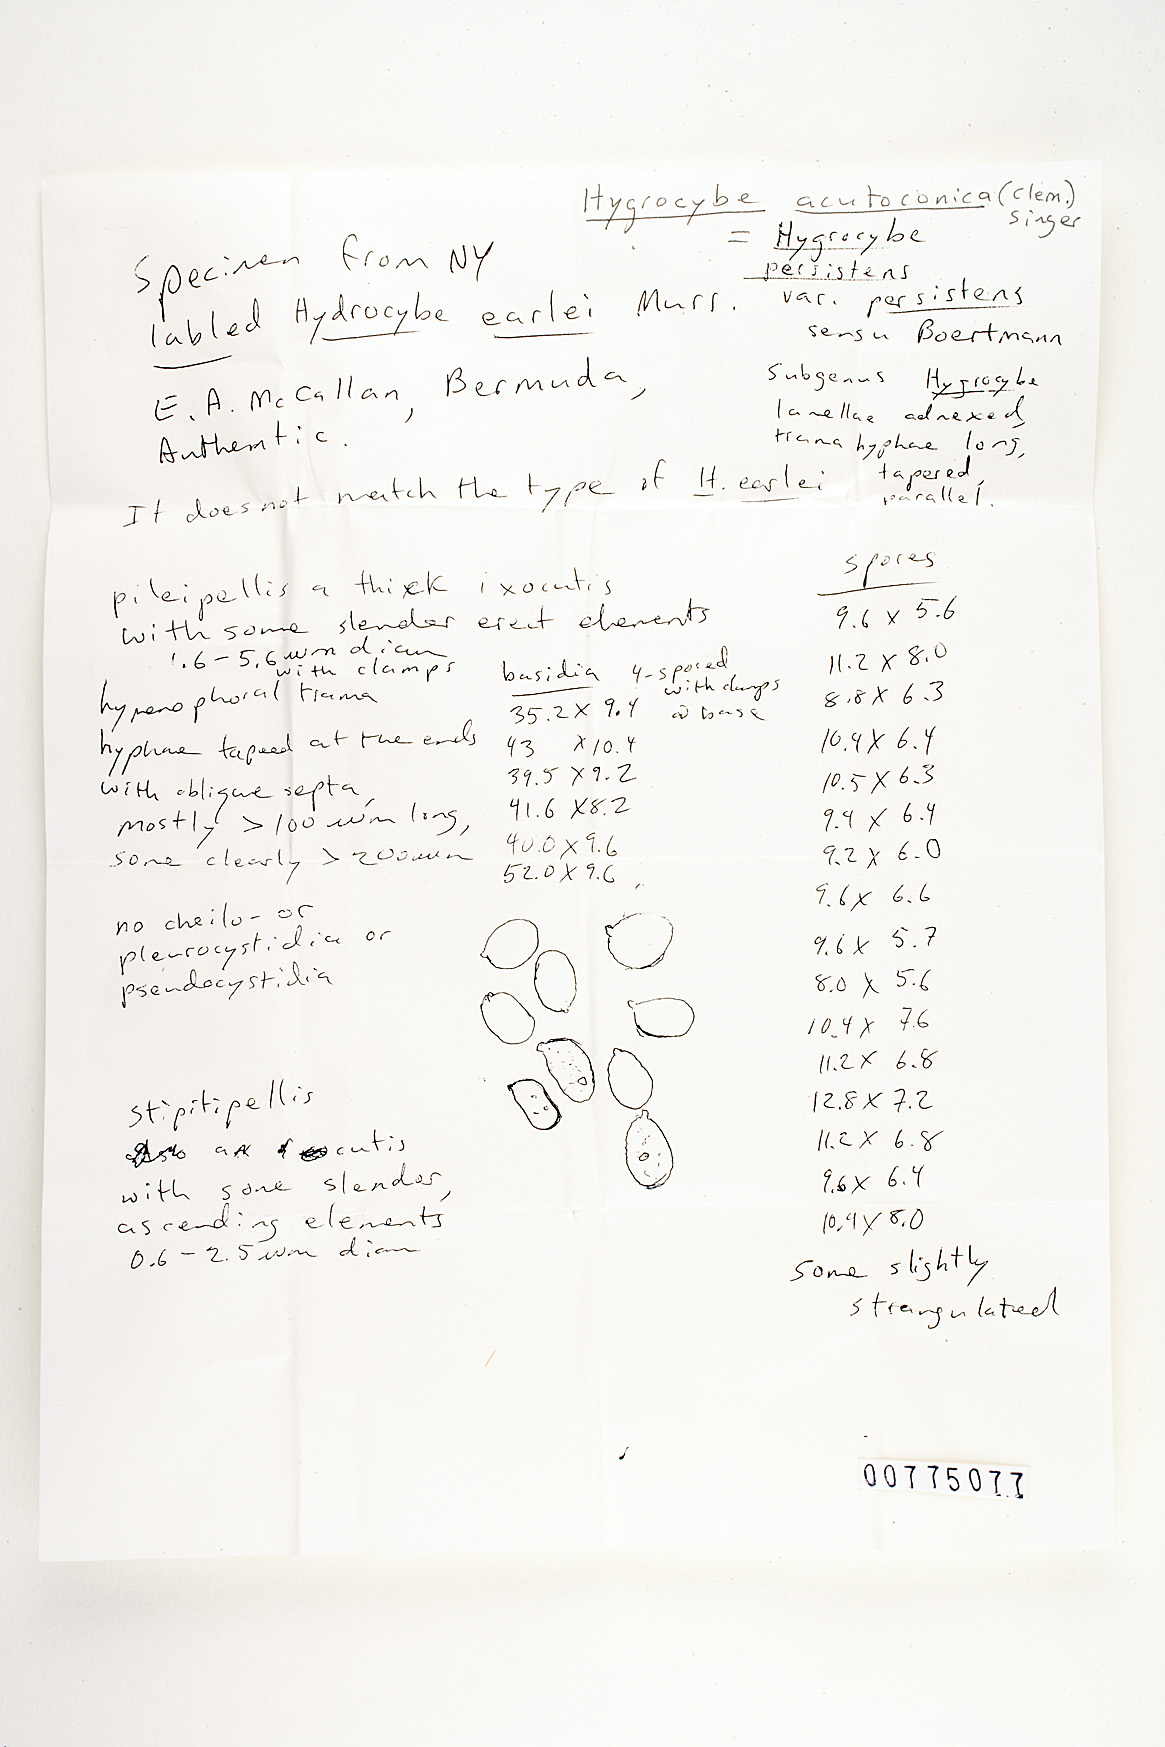 Hygrocybe acutoconica (Clem.)
Singer
= Hygrocybe
persistens
var. persistens
sensu Boertmann
Subgenus Hygrocybe
lamellae adnexed,
trama hyphae long,
tapered,
parallel.
Specimen from NY
labled Hydrocybe earlei Murr.
E. A. McCallan, Bermuda,
Authentic.
It does not match the type of H. earlei
pileipellis a thick ixocutis
with some slender erect elements
1.6 – 5.6 um diam
with clamps
hymenophoral trama
hyphae tapeed at the ends
with oblique septa,
mostly > 100 um long,
some clearly > 200 um
no cheilo- or
pleurocystidia or
pseudocystidia
stipitipellis
cutis
with some slender,
ascending elements
0.6 – 2.5 um diam
basidia 4-spored
with clamps
@ base
35.2 X 9.4
43 X 10.4
39.5 X 9.2
41.6 X 8.2
40.0 X 9.6
52.0 X 9.6
spores
9.6 X 5.6
11.2 X 8.0
8.8 X 6.3
10.4 X 6.4
10.5 X 6.3
9.4 X 6.4
9.2 X 6.0
9.6 X 6.6
9.6 X 5.7
8.0 X 5.6
10.4 X 7.6
11.2 X 6.8
12.8 X 7.2
11.2 X 6.8
9.6 X 6.4
10.4 X 8.0
some slightly
strangulated
00775077